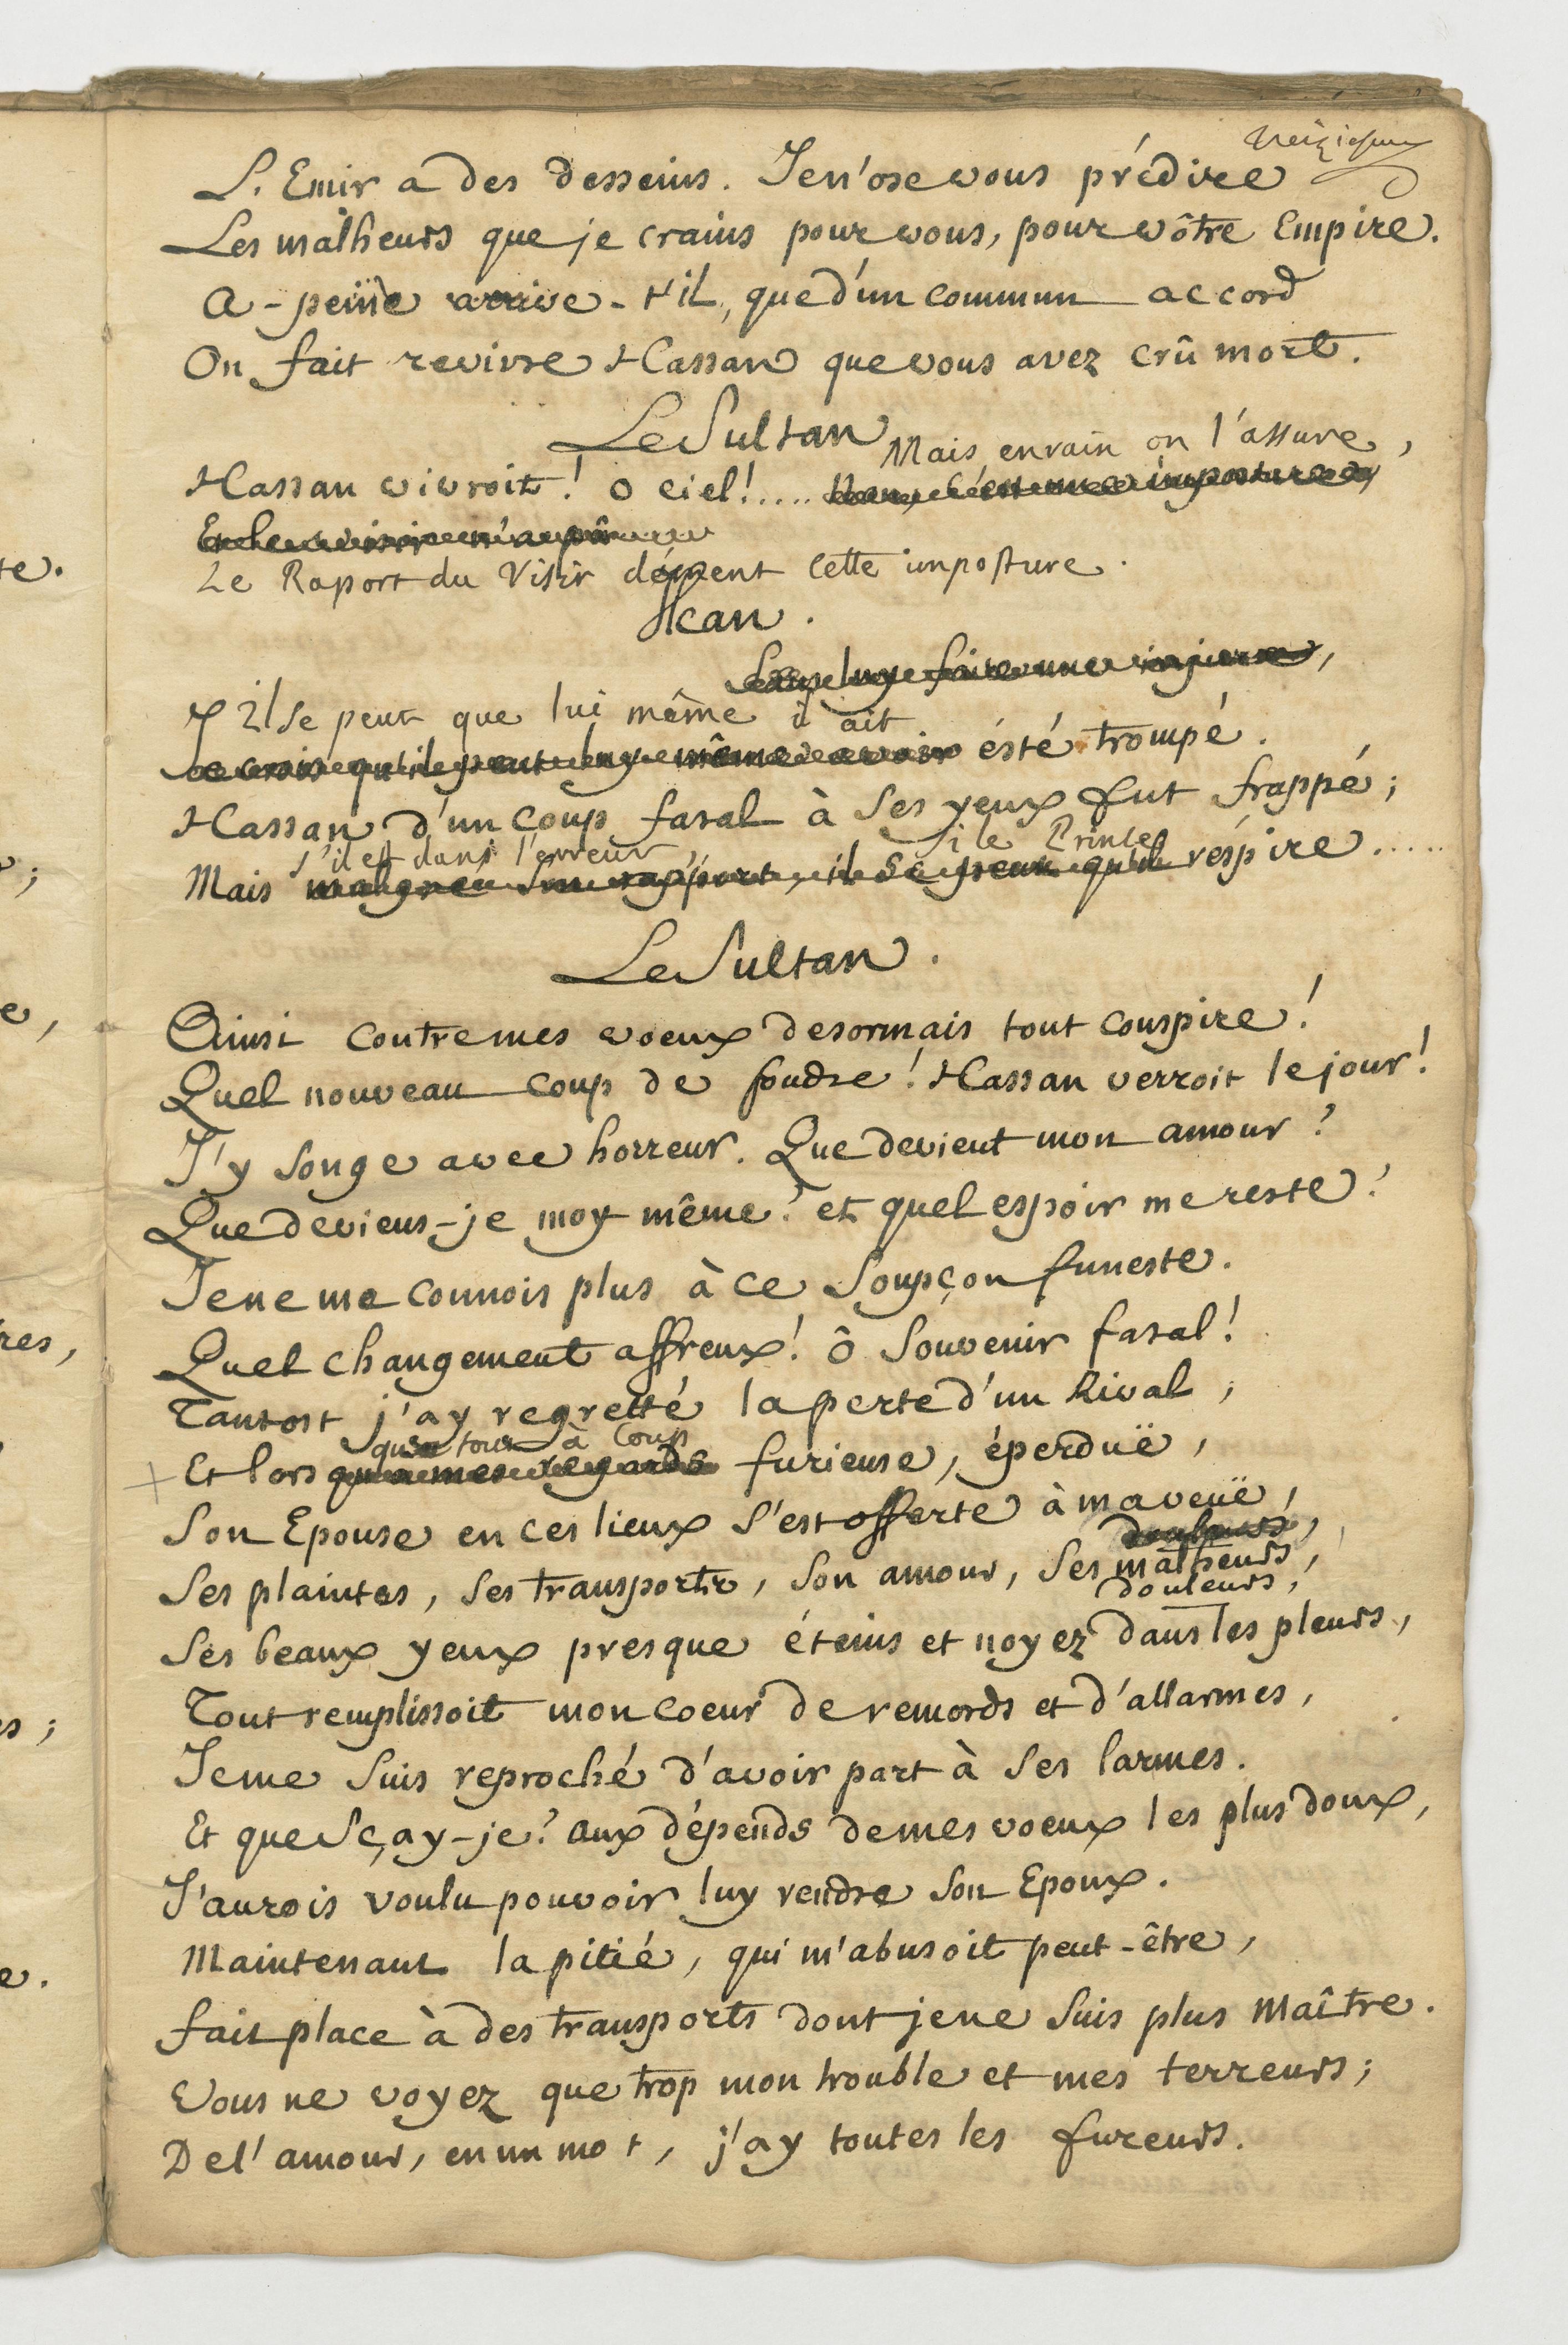 L'Emir a des desseins. Je n'ose vous prédire
Les malheurs que je crains pour vous, pour vôtre Empire.
A-peine arrive-t'il, que d'un commun accord
On fait revivre Hassan que vous avez crû mort.
Le Sultan
Mais envain on l'assure,
Hassan vivroit! o ciel!.... Non, c'est une imposture
Et le visir n'a pû
Le Raport du Visir dément cette imposture.
Ilcan.
Sans luy faire une injure,
Il se peut que lui même il ait
Je crois qu'il peut luy même avoir ésté trompé.
Hassan d'un coup fatal à ses yeux fut frappé;
s'il est dans l'erreur, si le Prince
Mais malgré son rapport, il se peut qu'il réspire.....
Le Sultan.
Ainsi contre mes voeux desormais tout conspire!
Quel nouveau coup de foudre! Hassan verroit le jour!
J'y songe avec horreur. Que devient mon amour?
Que deviens-je moy même? et quel espoir me reste?
Je ne me connois plus à ce soupçon funeste.
Quel changement affreux! ô souvenir fatal!
Tantost j'ay regretté la perte d'un Rival;
que tout à coup
Et lors qu'a mes regards furieuse, éperduë,
Son Epouse en ces lieux s'est offerte à ma veuë,
douleurs,
Ses plaintes, ses transports, son amour, ses malheurs,
douleurs,
Ses beaux yeux presque éteins et noyez dans les pleurs,
Tout remplissoit mon coeur de remords et d'allarmes,
Je me suis reproché d'avoir part à ses larmes.
Et que sçay-je? aux dépends de mes voeux les plus doux,
J'aurois voulu pouvoir luy rendre son Epoux.
Maintenant la pitié, qui m'abusoit peut-être,
fait place à des transports dont je ne suis plus Maître.
Vous ne voyez que trop mon trouble et mes terreurs;
De l'amour, en un mot, j'ay toutes les fureurs.